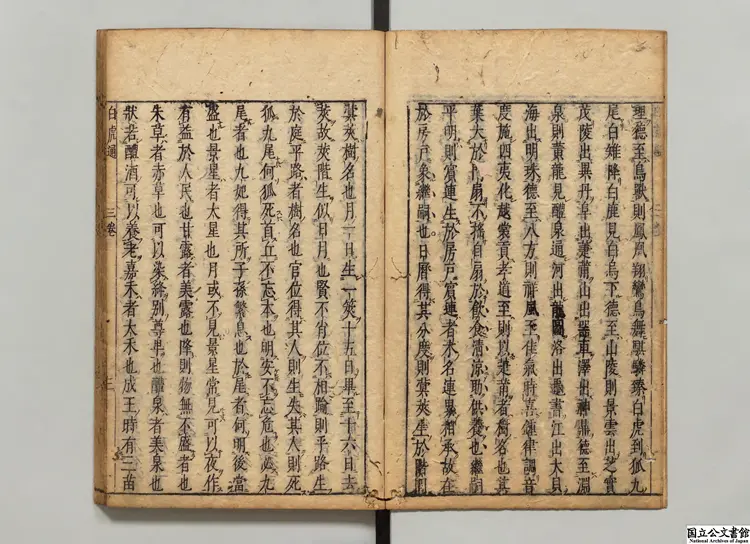 理德至鳥獸則鳳凰翔鸞鳥舞騏驎臻白虎到狐九
尾白雉降白鹿見白烏下德至山陵則景雲出芝實
茂陵出異丹阜出萐莆山出器車澤出神鼎德至淵
泉則黃龍見醴泉通河出龍圖洛出龜書江出大貝
海出明珠德至八方則祥風至佳氣時喜鍾律調音
度施四夷化越裳貢孝道至則以萐莆者樹名也其
葉大於門扇不搖自扇於飲食清涼助供養也繼嗣
平明則賓連生於房戶賓連者木名連累相承故在
於房戶象繼嗣也日曆得其分度則蓂莢生於階間
蓂莢樹名也月一日生一莢十五日畢至十六日去
莢故莢階生似日月也賢不肖位不相踰則平路生
於庭平路者樹名也官位得其人則生失其人則死
狐九尾何狐死首丘不忘本也明安不忘危也必九
尾者也九妃得其所子孫繁息也於尾者何明後當
盛也景星者大星也月或不見景星常見可以夜作
有益於人民也甘露者美露也降則物無不盛者也
朱草者赤草也可以染絳別尊卑也醴泉者美泉也
狀若醴酒可以養老嘉禾者大禾也成王時有三苗
白虎通
三卷
國立公文書館
National Archives of Japan